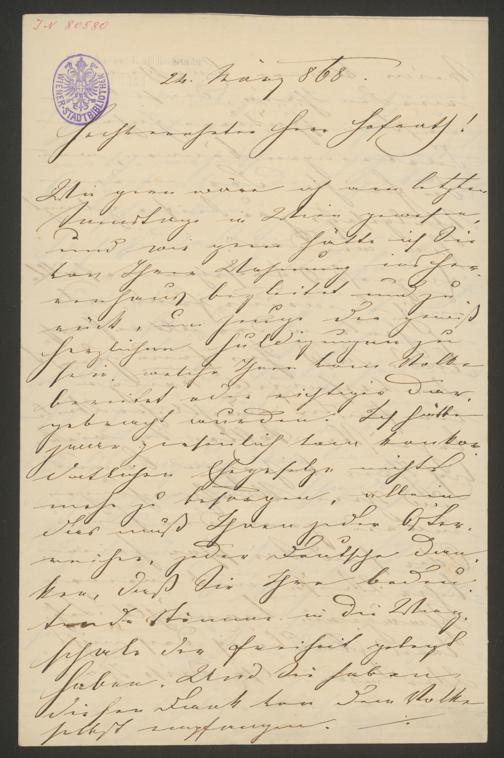 I.N. 80580
WIENER-STADTBIBLIOTHEK
24. März 868.
Hochverehrter Herr Hofrath!
Wie gern wäre ich am letzten
Samstage in Wien gewesen,
und wie gern hätte ich Sie
von Ihrer Wohnung ins Her-
renhaus begleitet und zu-
rück, um Zeuge der gewiß
herzlichen Huldigungen zu
sein, welche Ihnen vom Volke
bereitet oder richtiger dar-
gebracht wurden. Ich hätte
zwar persönlich vom konkor-
datlichen Ehegesetze nichts
mehr zu besorgen, allein
das muß Ihnen jeder Öster-
reicher, jeder Deutsche dan-
ken, daß Sie Ihre bedeu-
tende Stimme in die Wag-
schale der Freiheit gelegt
haben. Und Sie haben
diesen Dank von dem Volke
selbst empfangen.